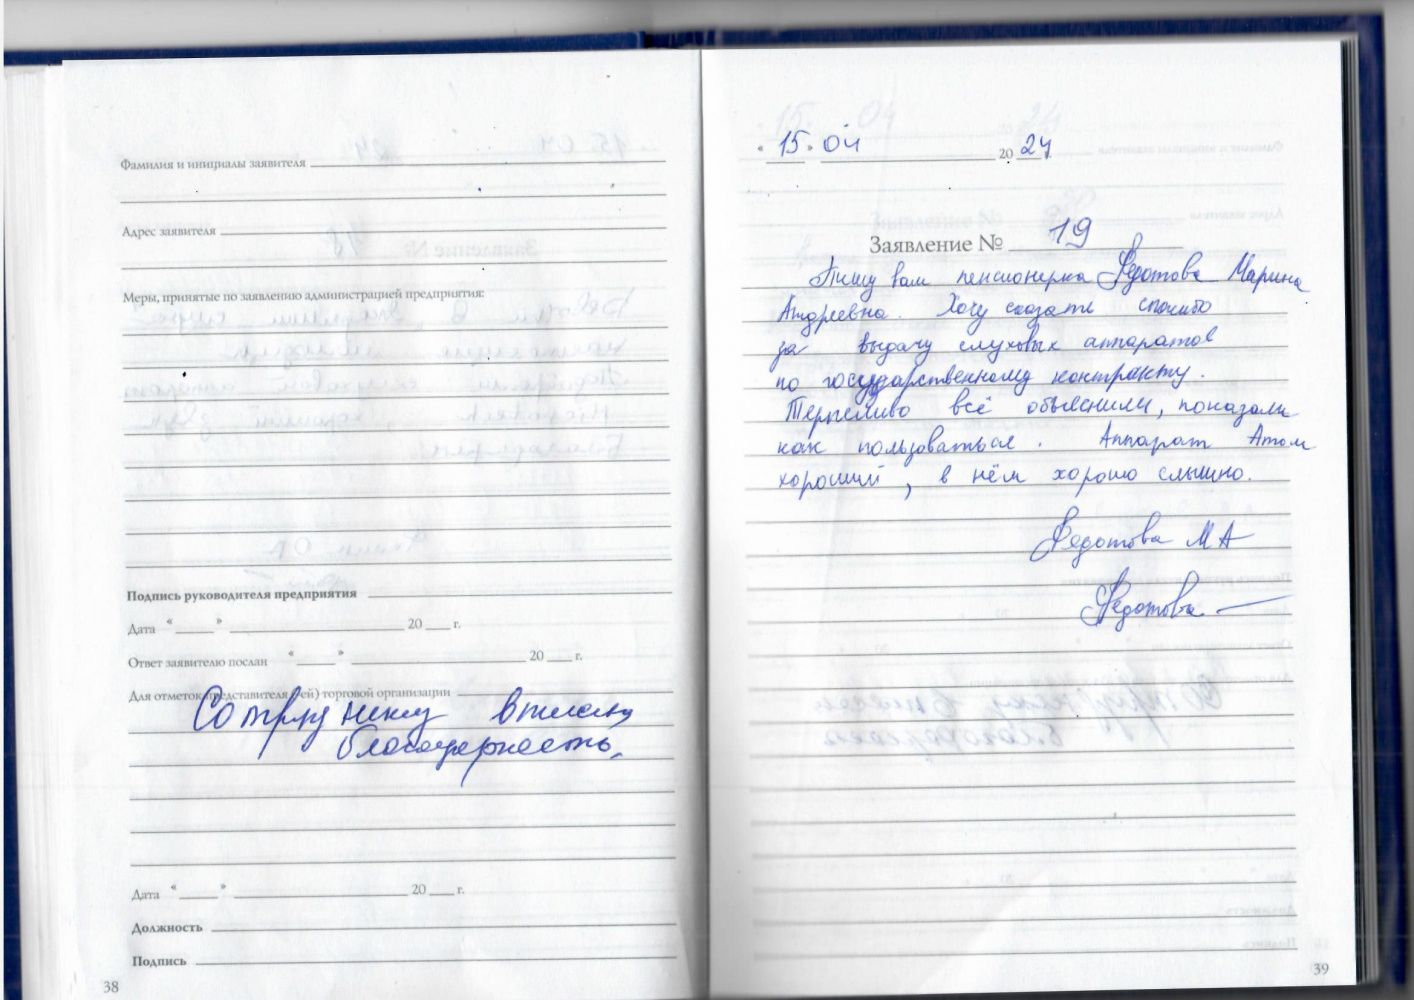 Фамилия и инициалы заявителя
Адрес заявителя
Меры, принятые по заявлению администрацией предприятия:
Подпись руководителя предприятия
Дата « » 20 г.
Ответ заявителю послан « » 20 г.
Для отметок представителя(ей) торговой организации
Сотруднику вписана
благодарность.
Дата « » 20 г.
Должность
Подпись
38
« 15 » 04 2024
Заявление № 19
Пишу вам пенсионерка Федотова Марина
Андреевна. Хочу сказать спасибо
за выдачу слуховых аппаратов
по государственному контракту.
Терпеливо всё объяснили, показали
как пользоваться. Аппарат Атом
хороший, в нём хорошо слышно.
Федотова МА
Федотова
39